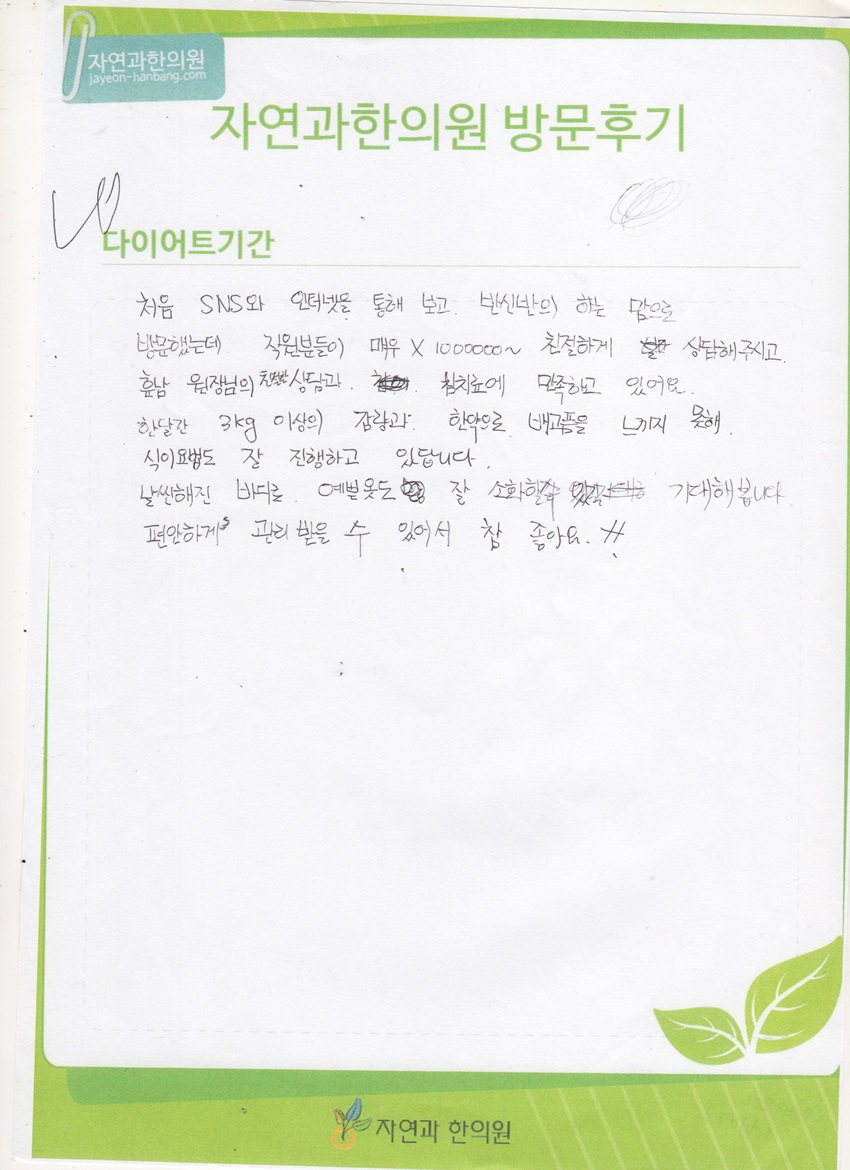 자연과한의원
jayeon-hanbang.com
자연과한의원 방문후기
다이어트기간
처음 SNS와 인터넷을 통해 보고. 반신반의 하는 맘으로
방문했는데 직원분들이 매우 X 1000000~ 친절하게 상담해주시고.
훈남 원장님의 친절한 상담과. 침치료에 만족하고 있어요.
한달간 3kg 이상의 감량과. 한약으로 배고픔을 느끼지 못해.
식이요법도 잘 진행하고 있답니다.
날씬해진 바디로. 예쁜옷도 잘 소화할 기대해봅니다.
편안하게 관리받을 수 있어서 참 좋아요.
자연과 한의원